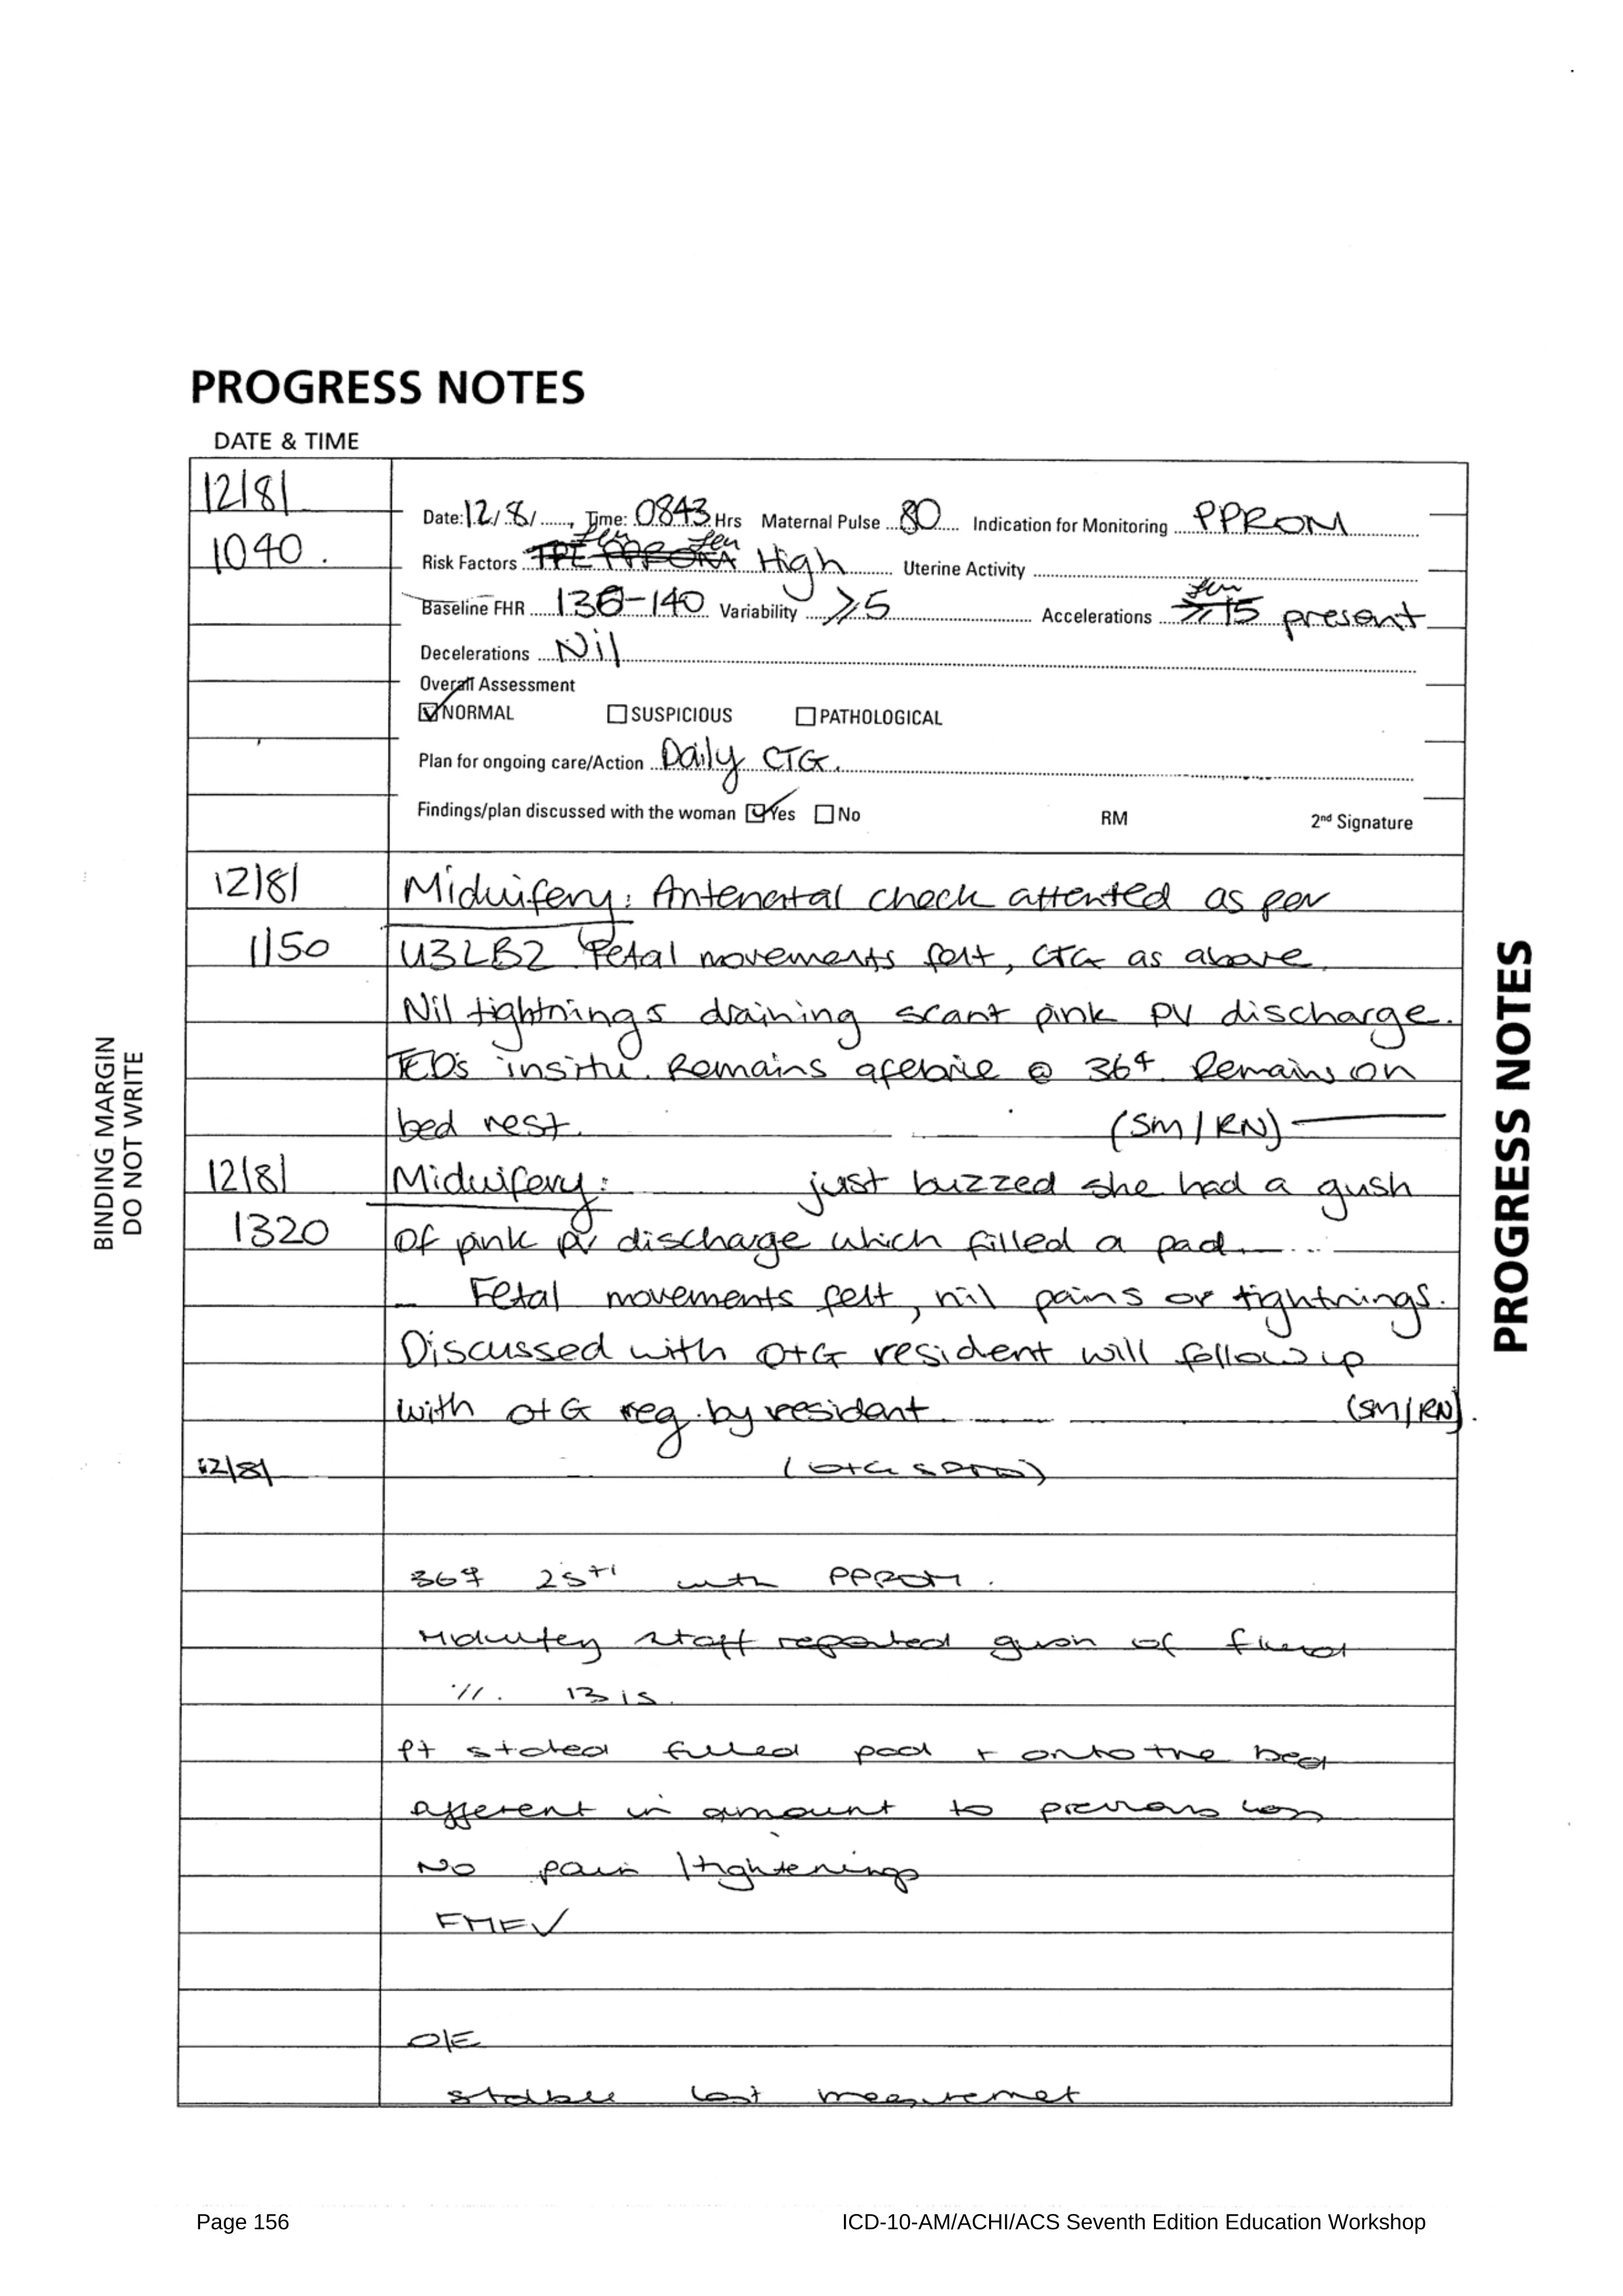 PROGRESS NOTES
DATE & TIME
12/8/
1040.
Date: 12/8/......, Time: 0843 Hrs Maternal Pulse 80 Indication for Monitoring PPROM
Risk Factors High Uterine Activity
Baseline FHR 130-140 Variability ≥5 Accelerations ≥15 present
Decelerations Nil
Overall Assessment
☑ NORMAL ☐ SUSPICIOUS ☐ PATHOLOGICAL
Plan for ongoing care/Action Daily CTG.
Findings/plan discussed with the woman ☑ Yes ☐ No RM 2nd Signature
12/8/ Midwifery: Antenatal check attented as per
1150 U3LB2 Fetal movements felt, CTG as above.
Nil tightnings draining scant pink PV discharge.
TEDs insitu. Remains afebrile @ 36⁴. Remains on
bed rest. (SM/RN)
12/8/ Midwifery: just buzzed she had a gush
1320 of pink pv discharge which filled a pad.
Fetal movements felt, nil pains or tightnings.
Discussed with O+G resident will follow up
with O+G reg. by resident (SM/RN).
12/8/ (O+G
25+1 with PPROM.
Midwifery staff reported gush of fluid
Pt stated filled pad + onto the bed
different in amount to previous loss
No pain/tightenings
FMF✓
O/E
stable last measuremet
BINDING MARGIN
DO NOT WRITE
PROGRESS NOTES
Page 156
ICD-10-AM/ACHI/ACS Seventh Edition Education Workshop